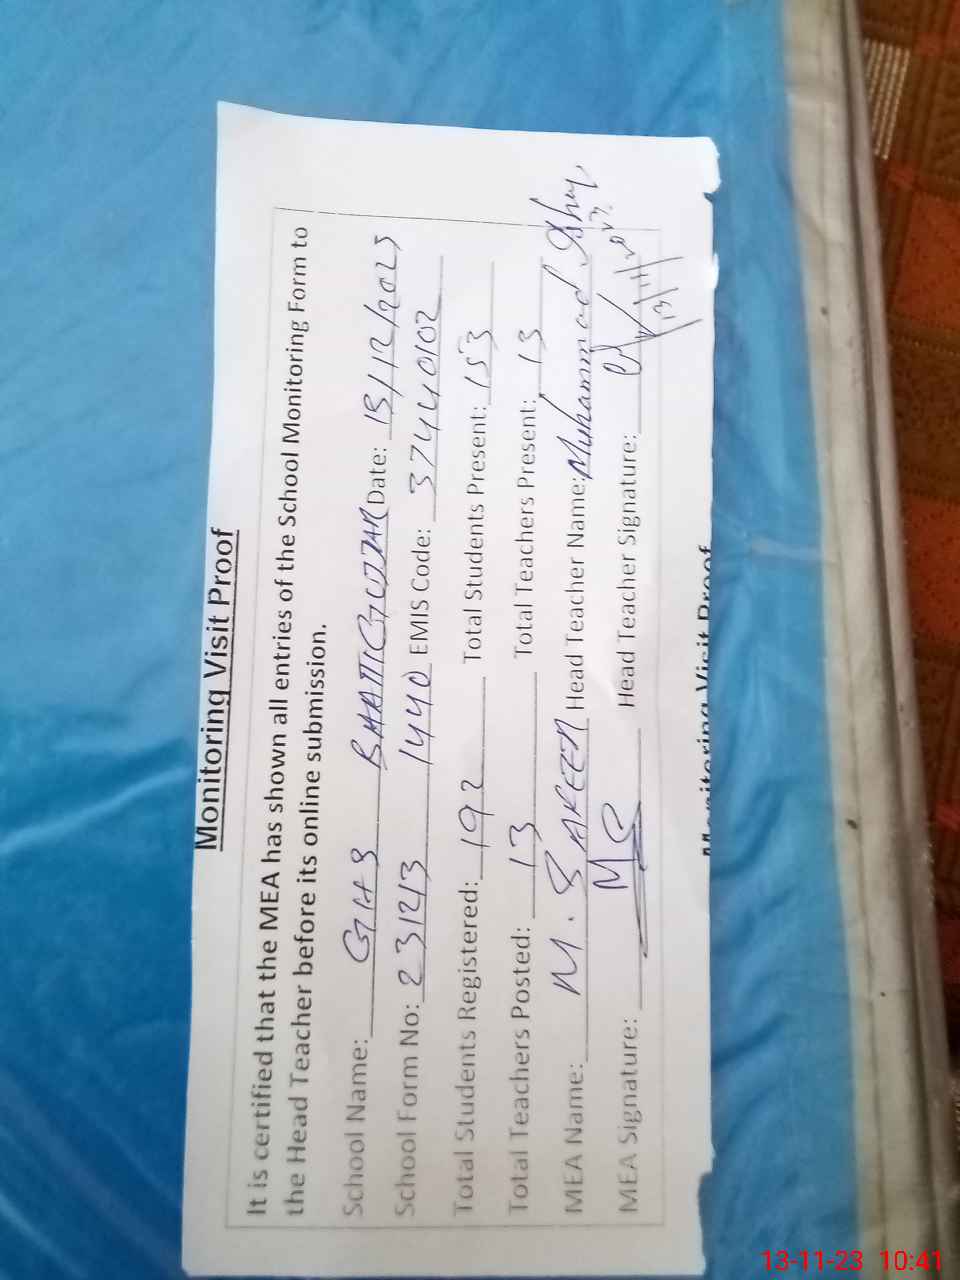 Monitoring Visit Proof
It is certified that the MEA has shown all entries of the School Monitoring Form to
the Head Teacher before its online submission.
School Name: GHS BHATTI GUJJAR Date: 13/12/2023
School Form No: 231213 1440 EMIS Code: 37440102
Total Students Registered: 192 Total Students Present: 153
Total Teachers Posted: 13 Total Teachers Present: 13
MEA Name: M. SAKEEN Head Teacher Name: Muhammad
MEA Signature: MS Head Teacher Signature:
13/11/2023
Monitoring Visit Proof
13-11-23 10:41